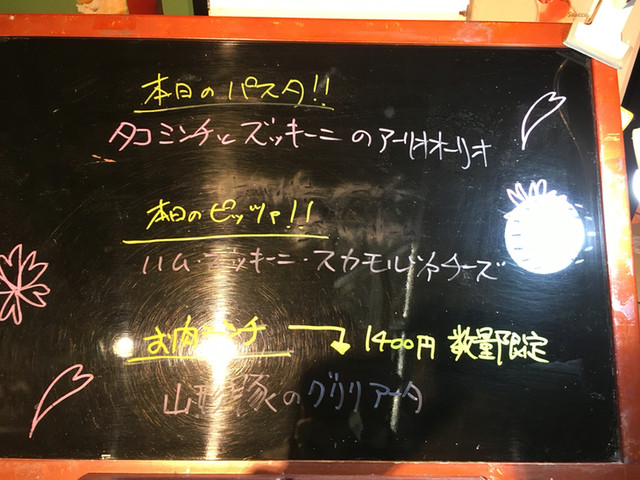 本日のパスタ!!
タコミンチとズッキーニのアーリオオーリオ
本日のピッツァ!!
ハム・ズッキーニ・スカモルツァチーズ
お肉ランチ → 1400円 数量限定
山形豚のグリリアータ